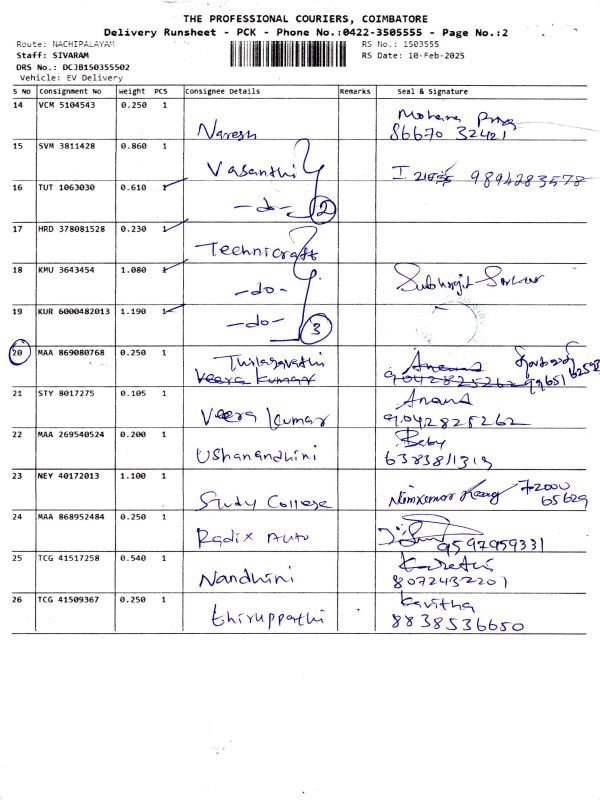 THE PROFESSIONAL COURIERS, COIMBATORE
Delivery Runsheet - PCK - Phone No.:0422-3505555 - Page No.:2
Route: NACHIPALAYAM
RS No.: 1503555
Staff: SIVARAM
RS Date: 10-Feb-2025
DRS No.: DCJB150355502
Vehicle: EV Delivery
S No Consignment No weight PCS Consignee Details Remarks Seal & Signature
14 VCM 5104543 0.250 1 Naresh Mohana Priya
86670 32421
15 SVM 3811428 0.860 1 Vasanthi 9894283578
16 TUT 1063030 0.610 1 -do- 2
17 HRD 378081528 0.230 1 Technicraft
18 KMU 3643454 1.080 1 -do- Subhrajit Sarkar
19 KUR 6000482013 1.190 1 -do- 3
20 MAA 869080768 0.250 1 Thilagavathi Anand
Veera Kumar 9042825262
21 STY 8017275 0.105 1 Veera Kumar Anand
9042825262
22 MAA 269540524 0.200 1 Ushanandhini Beby
6383811319
23 NEY 40172013 1.100 1 Study College 72000
65629
24 MAA 868952484 0.250 1 Radix Auto 9597959331
25 TCG 41517258 0.540 1 Nandhini
8072432201
26 TCG 41509367 0.250 1 thiruppathi Kavitha
8838536650